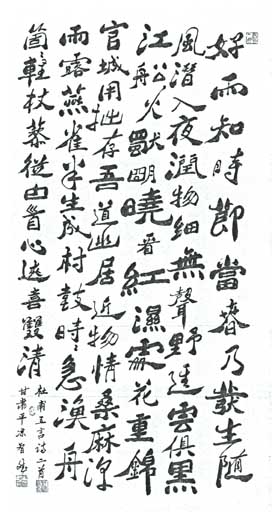 好雨知時節當春乃發生隨
風潛入夜潤物細無聲野逕雲俱黑
江舩火獨明曉看紅濕處花重錦
官城用拙存吾道幽居近物情桑麻深
雨露燕雀半生成村鼓時〻急漁舟
箇〻輕杖藜從白首心迹喜雙清
杜甫五言詩二首
甘肅平涼